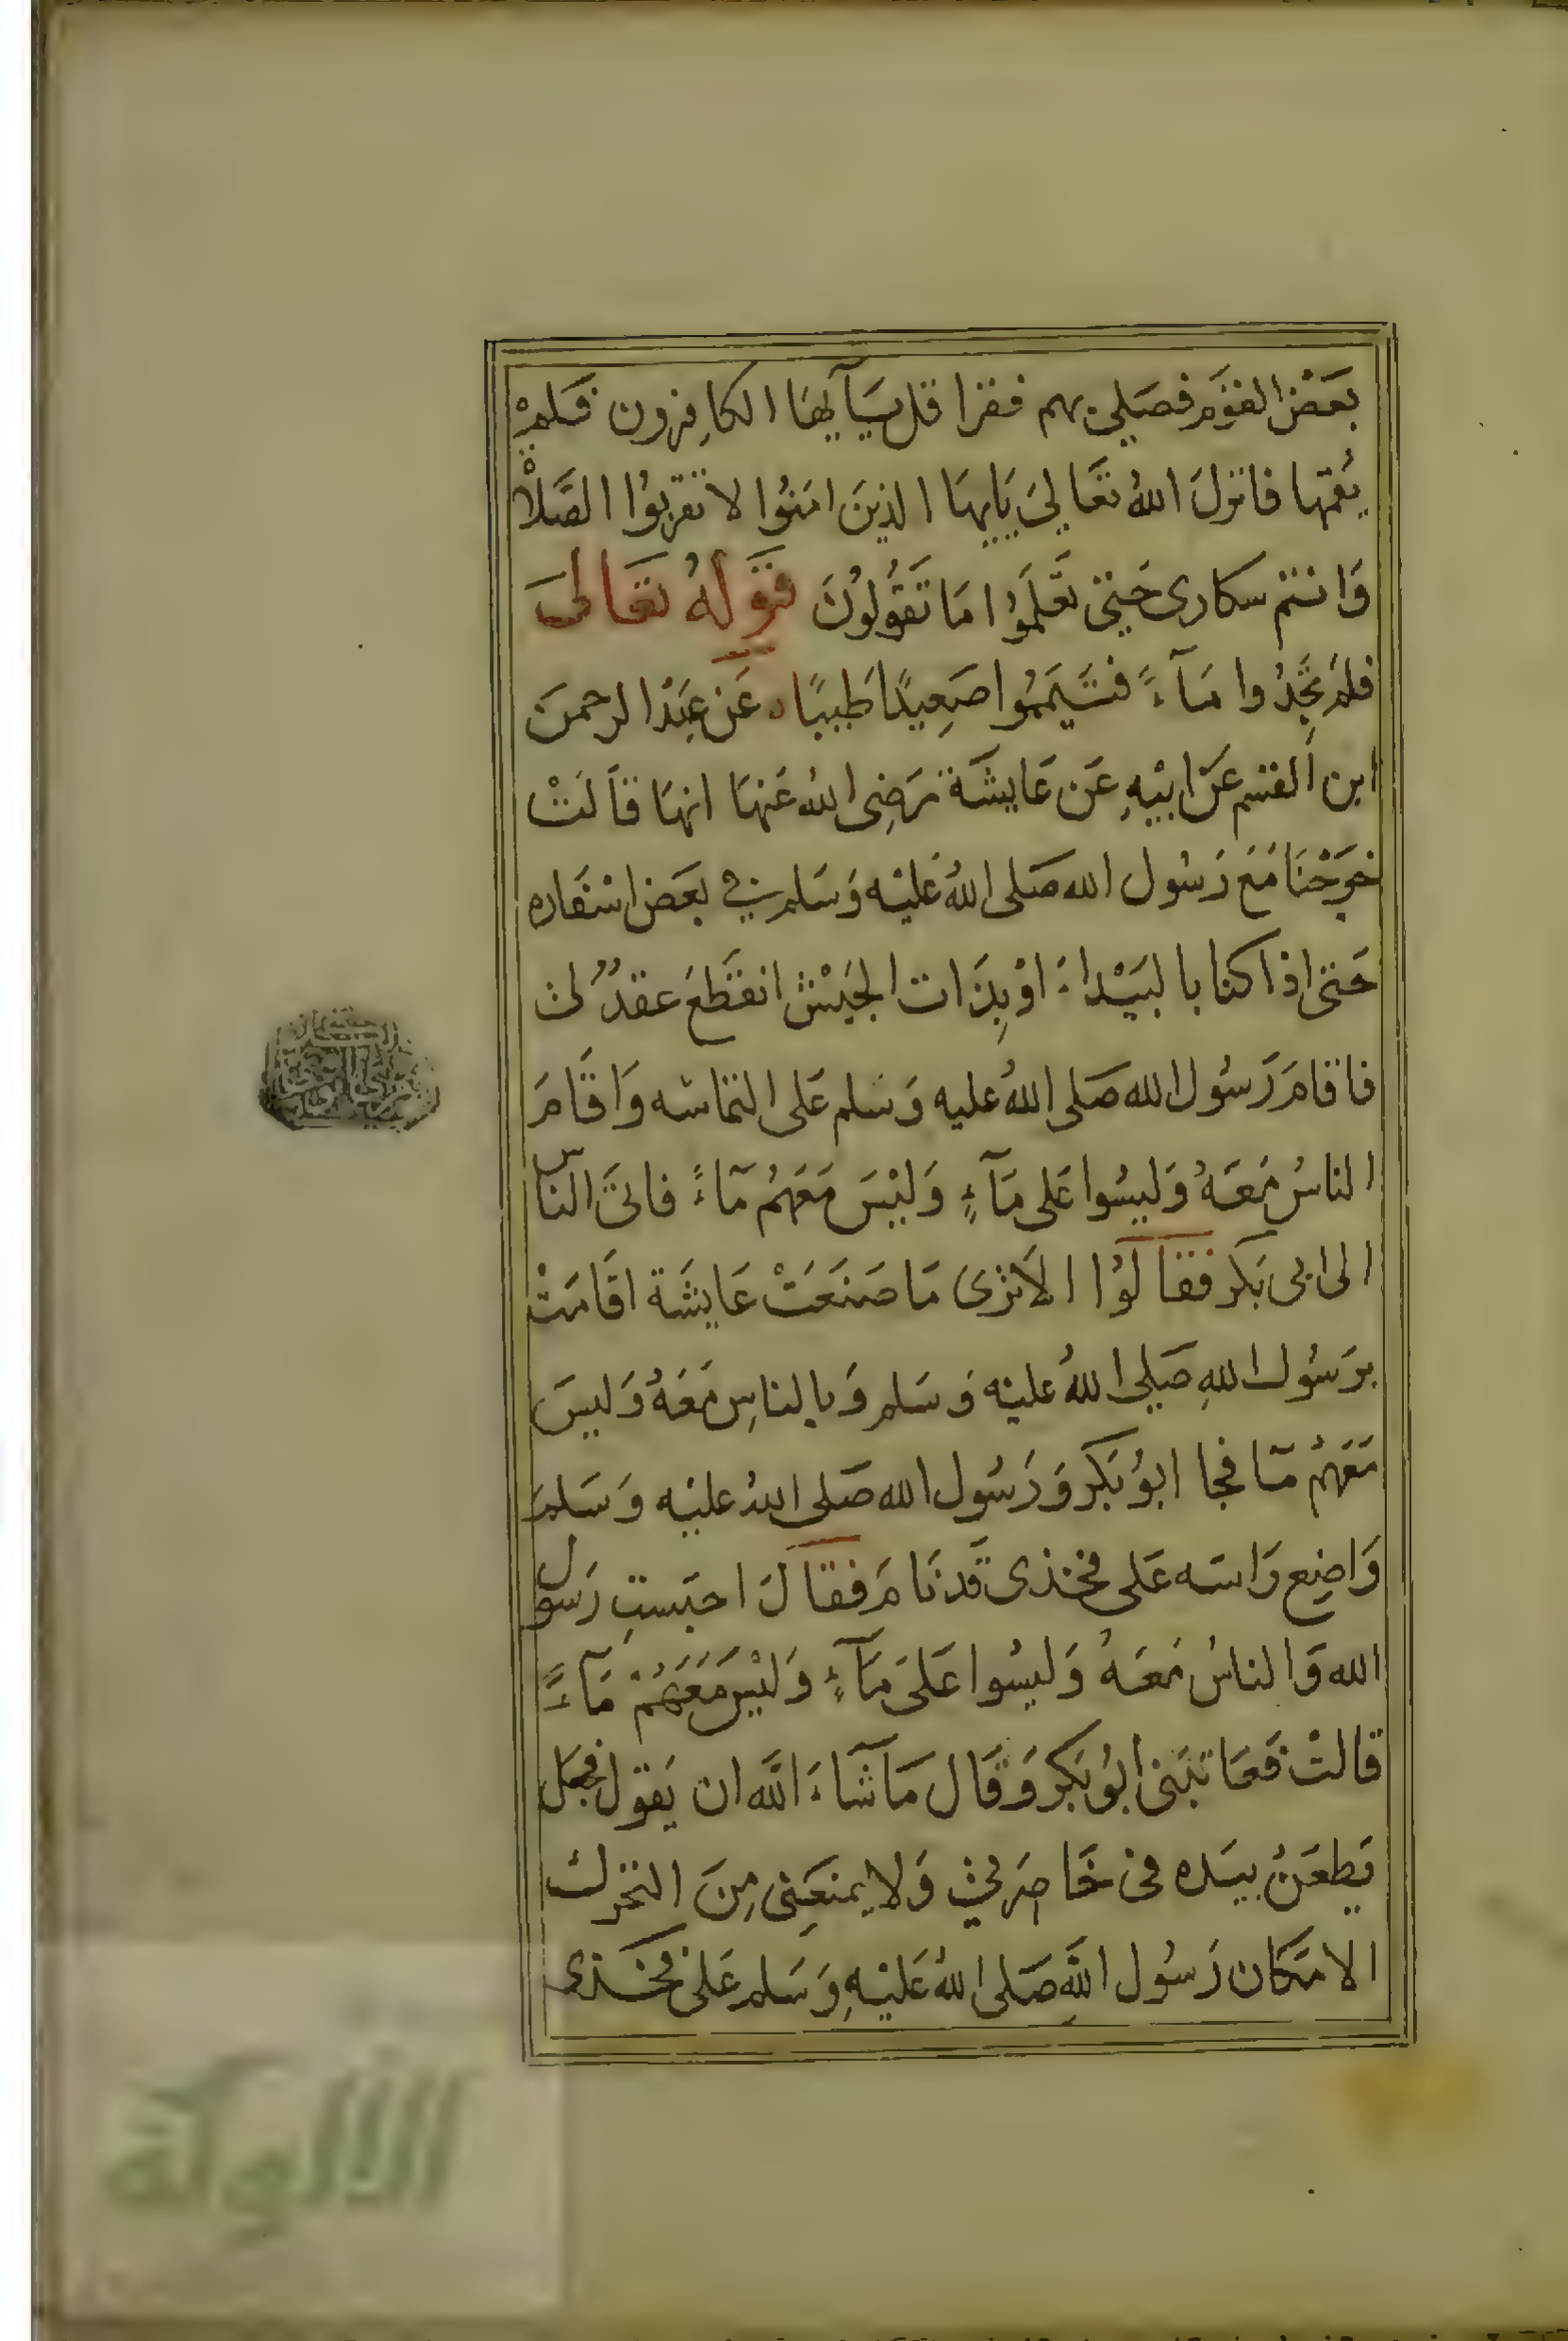 بَعَضْ القوَم فصَلى بهم فقرا قل يَاَيهَا الكافِرون فَلمْ
يُقمها فانزلَ اللهُ تعَالىَ يَايهَا الذينَ امَنوُا لا تقربوُا الصَلاْة
وَانتم سكارى حَتىّ تعَلَمَوُا مَا تَقوُلوُنَ قوَلهُ تعَالىَ
فلمَ تجِدُوا مَآءً فتَيَممُوا صَعِيدًا طَيبًا عَن عَبَدْ الرحمنَ
ابن القسم عَن ابَيْهِ عَن عَايشَة رَضِى اللهُ عَنهَا انهَا قاَلتْ
خرَجْنَا مَعَ رَسُول الله صَلى اللهُ عَليْه وَسَلم في بعَض اسْفَاره
حَتى اذا كنا بالبَيْداءَ اوْ بِذَات الجَيْش انقَطعَ عقدُ لى
فاقامَ رَسُول الله صَلى اللهُ عليه وَسَلم عَلى التماسَه وَاقَامَ
الناسُ مَعَهُ وَليسُوا عَلى مَآءٍ وَليْسَ مَعَهُم مَآءً فاتىَ الناّس
الى ابى بَكر فقالوُا الاَترى مَا صَنعَتْ عَايشَة اقَامَتْ
برَسُول اللهِ صَلى اللهُ عليْه وَسَلم وَبالناسِ مَعَهُ وَليسَ
مَعَهُمُ مَا فجا ابوُ بَكر وَرَسُول الله صَلى اللهُ عليْه وَسَلمَ
وَاضِع رَاسَه عَلى فخذى قَدنَامَ فقالَ احبَستِ رَسوُل
الله وَالناسُ مَعَهُ وَليسُوا عَلىَ مَآءٍ وَليْسَ مَعَهُمْ مَآءً
قالتْ فعَاتبَنى ابوُ بَكر وَقَال مَا شَاءَ اللَّه ان يَقول فجعَل
يَطعَنُ بيَده فى خَاصِرتي وَلا يمنعَنِى مِنَ التحرك
الا مَكان رَسُول اللَّهِ صَلى اللهُ عَليْهِ وَسَلم عَلى فخذى
الألوكة